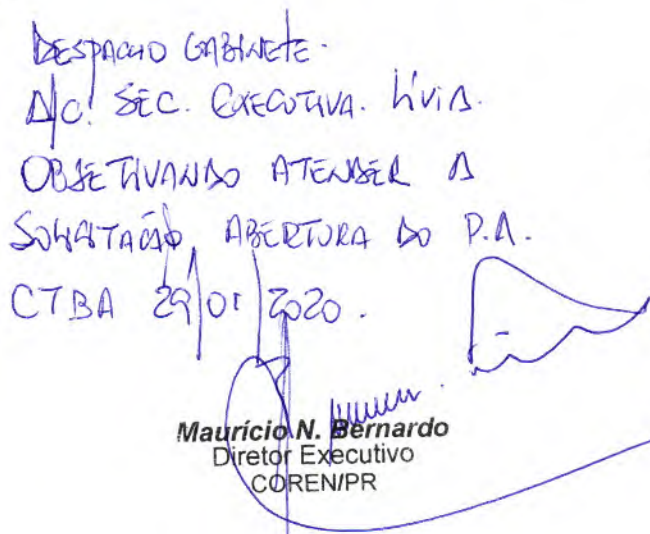 DESPACHO GABINETE.
A/C: SEC. EXECUTIVA. LÍVIA.
OBJETIVANDO ATENDER A
SOLICITAÇÃO, ABERTURA DO P.A.
CTBA 29/01/2020.
Maurício N. Bernardo
Diretor Executivo
COREN/PR